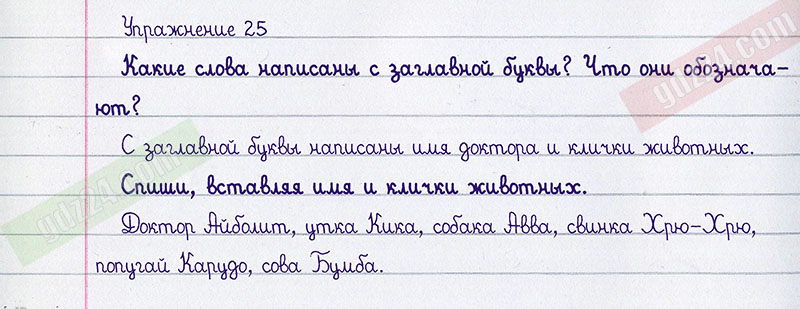 Упражнение 25
Какие слова написаны с заглавной буквы? Что они обознача-
ют?
С заглавной буквы написаны имя доктора и клички животных.
Спиши, вставляя имя и клички животных.
Доктор Айболит, утка Кика, собака Авва, свинка Хрю-Хрю,
попугай Карудо, сова Бумба.
gdz24.com
gdz24.com